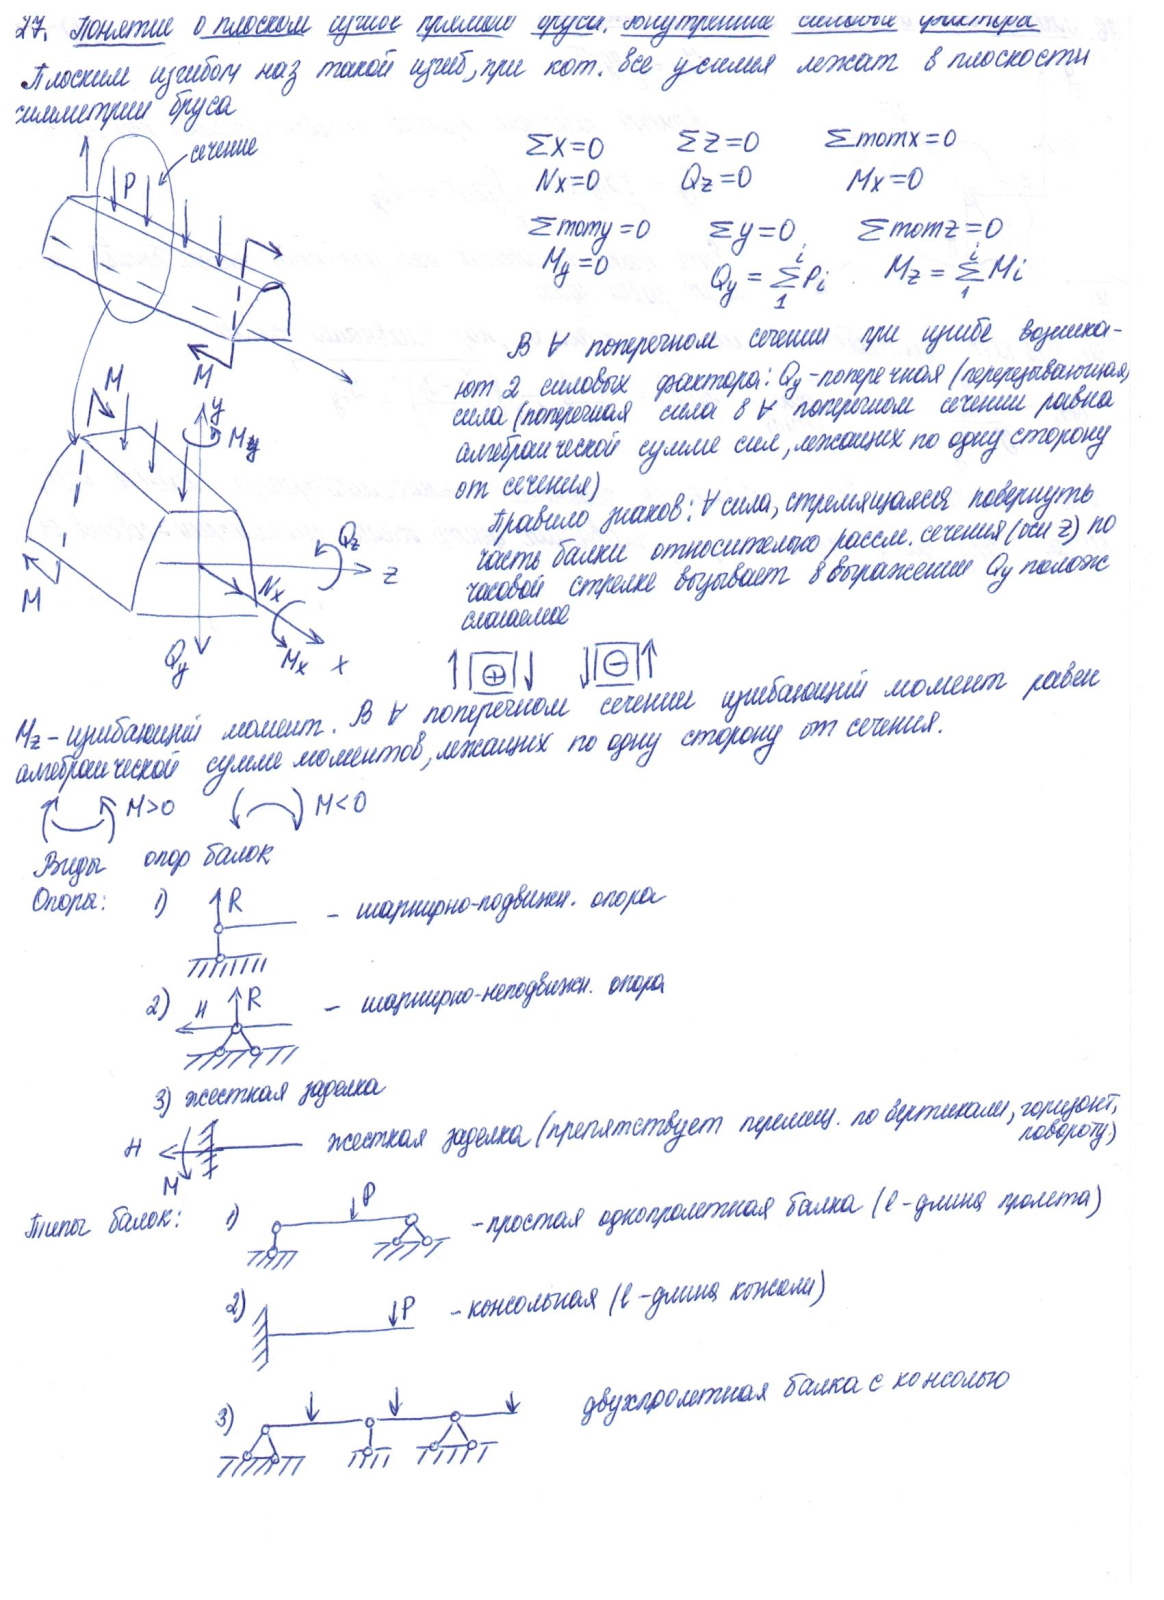 27. Понятие о плоском изгибе прямого бруса. Внутренние силовые фактора
Плоским изгибом наз такой изгиб, при кот. все усилия лежат в плоскости
симметрии бруса
сечение
P
ΣX=0 ΣZ=0 Σmomx=0
Nx=0 Qz=0 Mx=0
Σmomy=0 Σy=0 Σmomz=0
My=0 Qy = Σ₁ⁱ Pi Mz = Σ₁ⁱ Mi
M
В ∀ поперечном сечении при изгибе возника-
ют 2 силовых фактора: Qy-поперечная (перерезывающая)
сила (поперечная сила в ∀ поперечном сечении равна
алгебраической сумме сил, лежащих по одну сторону
от сечения)
Правило знаков: ∀ сила, стремящаяся повернуть
часть балки относительно рассм. сечения (оси z) по
часовой стрелке вызывает в выражении Qy полож
слагаемое
M
y
My
Qz
z
Nx
M
Qy
Mx
x
+ −
Mz - изгибающий момент. В ∀ поперечном сечении изгибающий момент равен
алгебраической сумме моментов, лежащих по одну сторону от сечения.
M>0 M<0
Виды опор балок
Опоры: 1) R - шарнирно-подвижн. опора
2) H R - шарнирно-неподвижн. опора
3) жесткая заделка
H M жесткая заделка (препятствует перемещ. по вертикали, горизонт,
повороту)
Типы балок: 1) P - простая однопролетная балка (l - длина пролета)
2) P - консольная (l - длина консоли)
3) двухпролетная балка с консолью